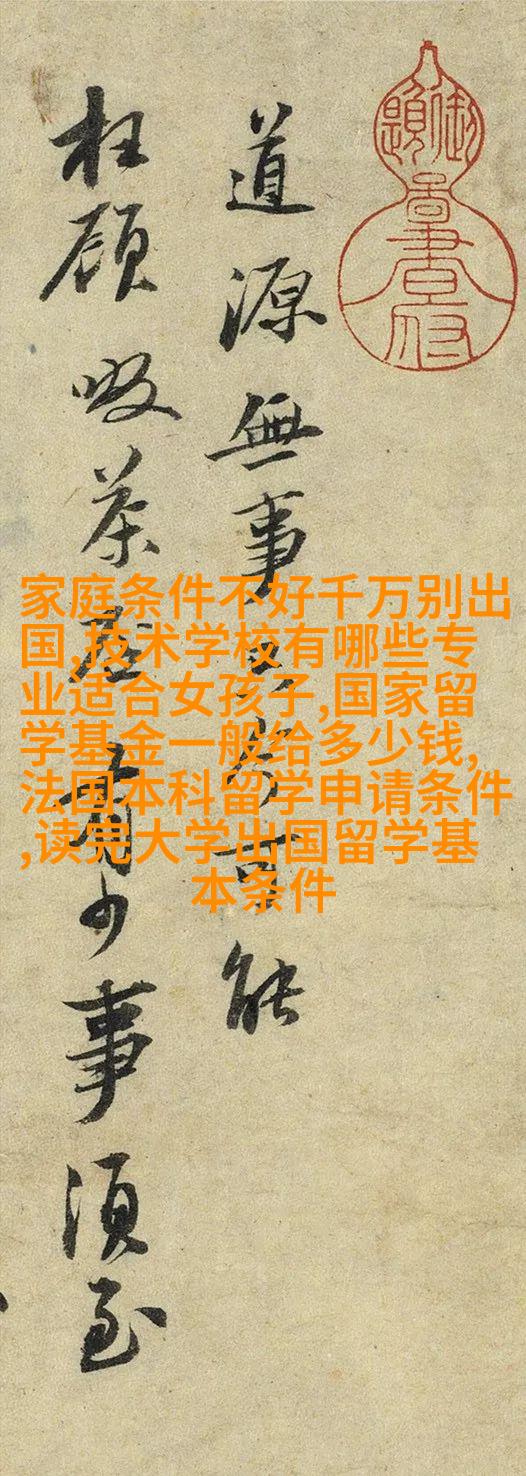 道源無事只今可能
枉顧啜茶否有少事須至
家庭条件不好千万别出
国,技术学校有哪些专
业适合女孩子,国家留
学基金一般给多少钱,
法国本科留学申请条件
,读完大学出国留学基
本条件